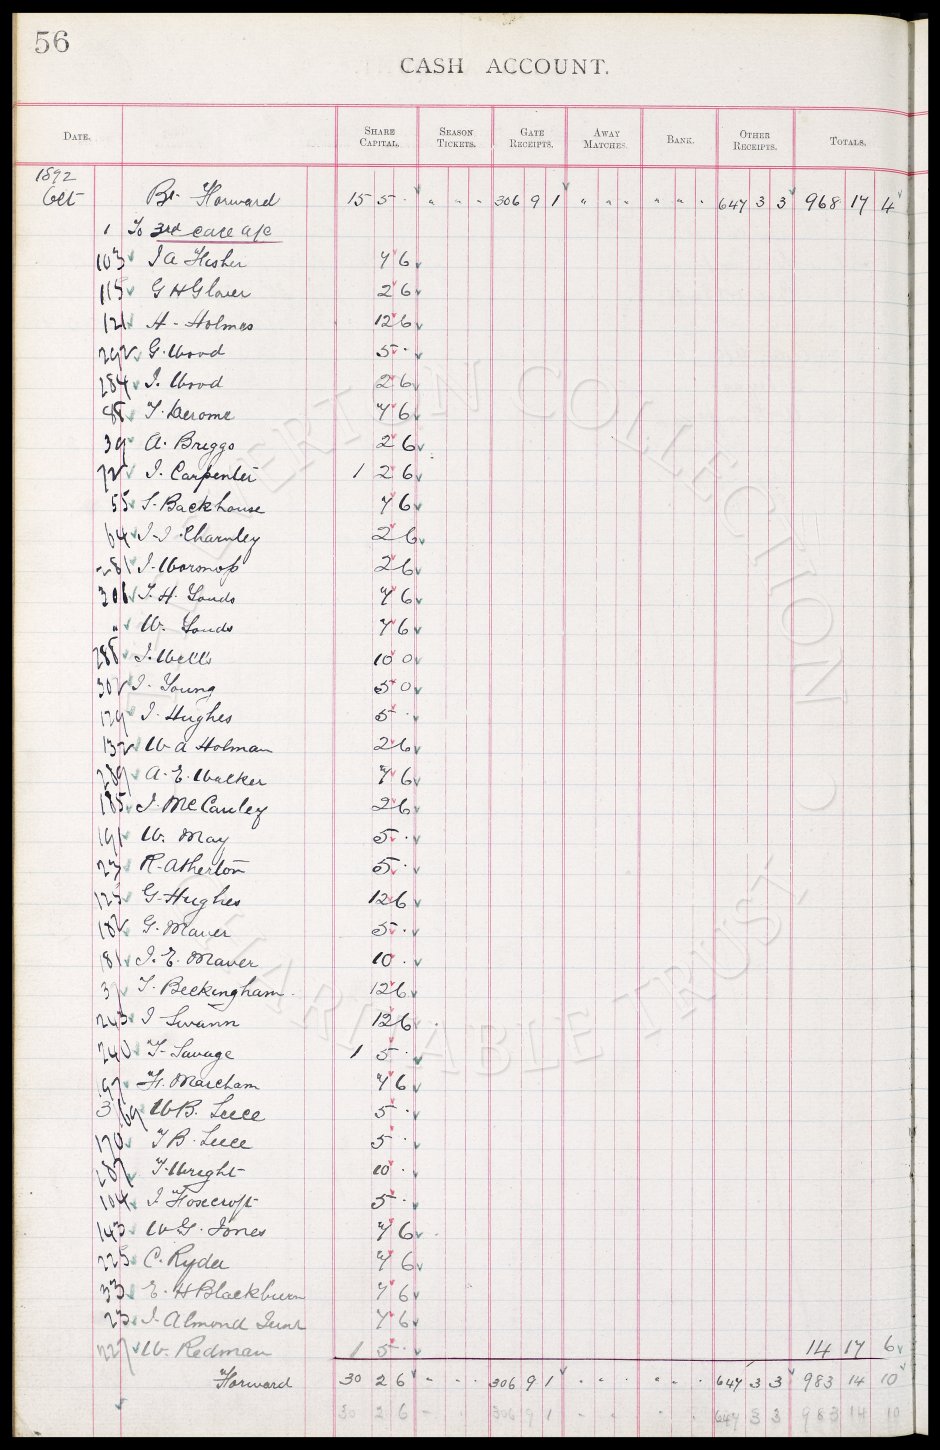 56
CASH ACCOUNT.
DATE. SHARE CAPITAL. SEASON TICKETS. GATE RECEIPTS. AWAY MATCHES. BANK. OTHER RECEIPTS. TOTALS.
1892
Oct Bt. Forward 15 5 · " " " 306 9 1 " " " " " " 647 3 3 968 17 4
1 To 3rd call a/c
103 J A Fisher 7 6
115 G H Glover 2 6
121 H. Holmes 12 6
292 G. Wood 5 ·
284 J. Wood 2 6
88 T. Jerome 7 6
39 A. Briggs 2 6
72 J. Carpenter 1 2 6
55 S. Backhouse 7 6
64 J. J. Charnley 2 6
281 J. Worsnop 2 6
306 T. H. Youds 7 6
" W. Youds 7 6
288 J. Wells 10 0
302 J. Young 5 0
129 J. Hughes 5 ·
132 W A Holman 2 6
289 A. E. Walker 7 6
185 J. McCauley 2 6
191 W. May 5 ·
23 R. Atherton 5 ·
125 G. Hughes 12 6
182 G. Maver 5 ·
181 J. E. Maver 10 ·
37 T. Beckingham 12 6
243 J Swann 12 6
240 T. Savage 1 5 ·
197 H. Marcham 7 6
3 169 W B. Leece 5 ·
170 T B. Leece 5 ·
287 T. Wright 10 ·
104 J. Foxcroft 5 ·
143 W G. Jones 7 6
225 C. Ryder 7 6
33 E. H Blackburn 7 6
23 J. Almond Junr 7 6
227 W. Redman 1 5 · 14 17 6
Forward 30 2 6 " · · 306 9 1 " · · " " · 647 3 3 983 14 10
30 2 6 - · · 306 9 1 647 3 3 983 14 10
EVERTON COLLECTION
CHARITABLE TRUST